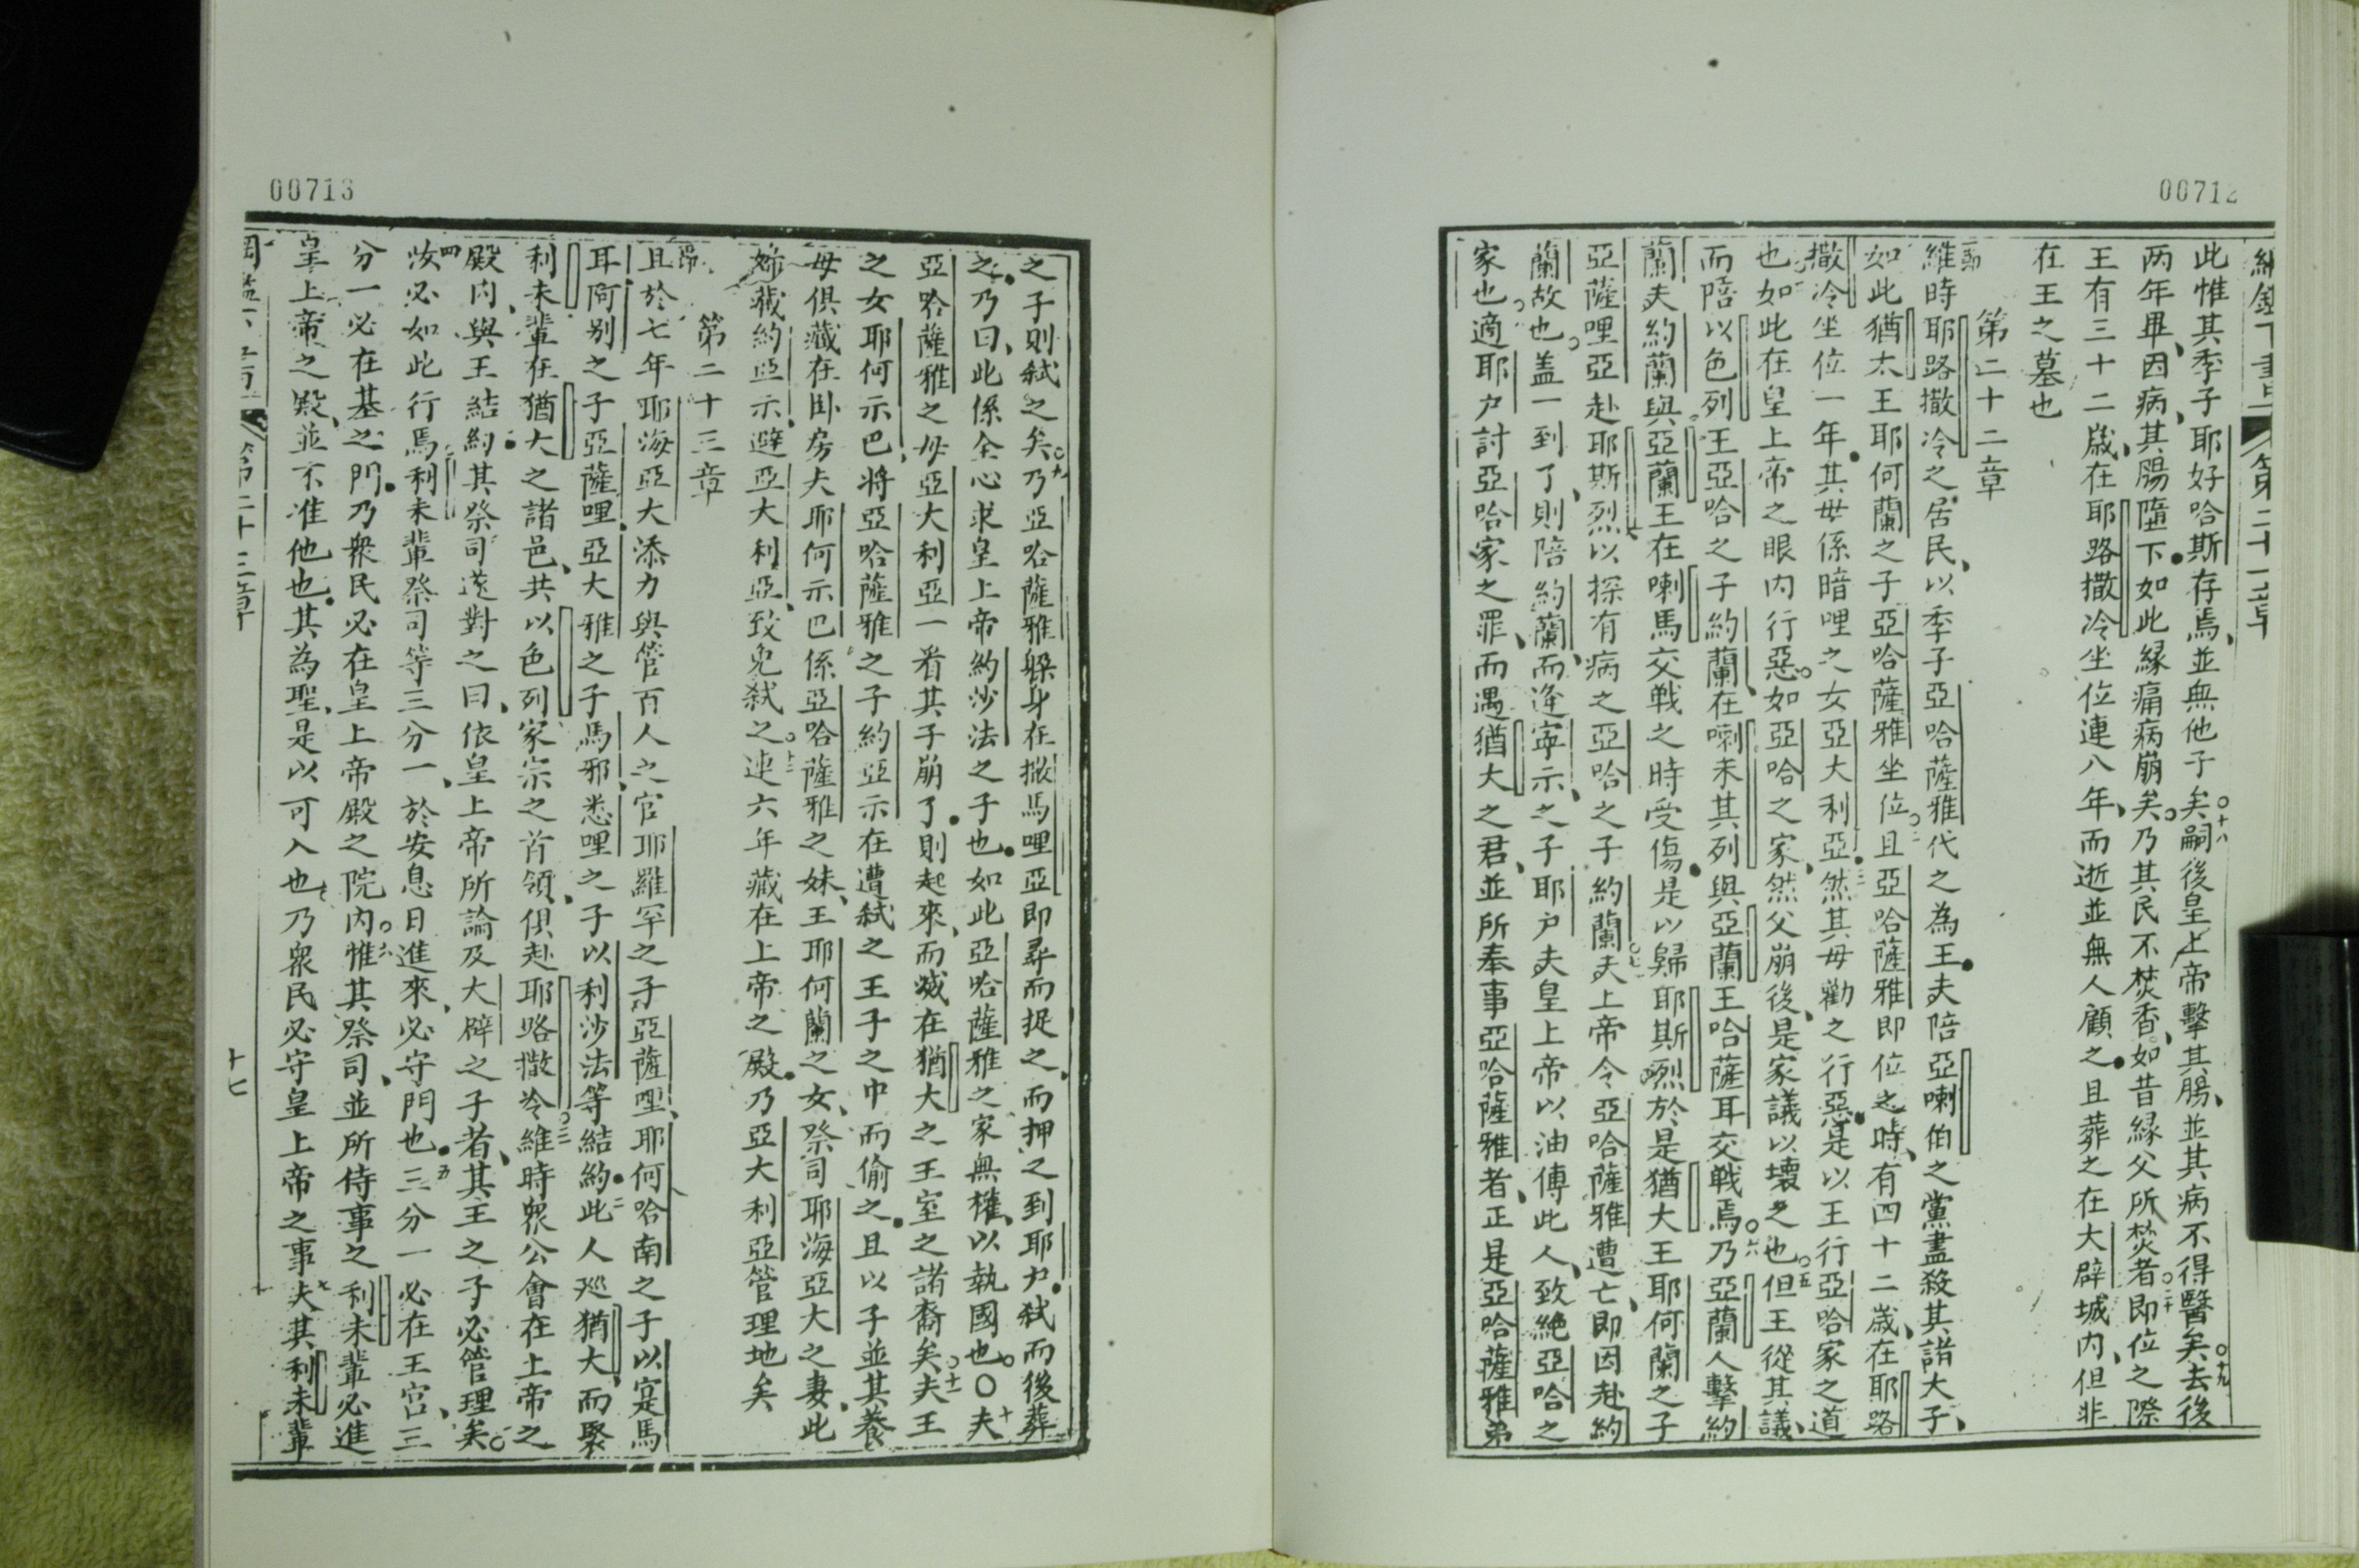 00712
第二十一章
此惟其季子耶好哈斯存焉並無他子矣○十八嗣後皇上帝擊其腸並其病不得醫矣○十九去後
两年畢因病其腸墮下如此緣痛病崩矣乃其民不焚香如昔緣父所焚者○二十即位之際
王有三十二歲在耶路撒冷坐位連八年而逝並無人顧之且葬之在大辟城内但非
在王之墓也
第二十二章
維時耶路撒冷之居民以季子亞哈薩雅代之為王夫陪亞喇伯之黨盡殺其諸大子
如此猶大王耶何蘭之子亞哈薩雅坐位○二且亞哈薩雅即位之時有四十二歲在耶路
撒冷坐位一年其母係暗哩之女亞大利亞三然其母勸之行惡是以王行亞哈家之道
也如此在皇上帝之眼内行惡如亞哈之家然父崩後是家議以壞之也○五但王從其議
而陪以色列王亞哈之子約蘭在喇未其列與亞蘭王哈薩耳交戰焉○六乃亞蘭人擊約
蘭夫約蘭與亞蘭王在喇馬交戰之時受傷是以歸耶斯烈於是猶大王耶何蘭之子
亞薩哩亞赴耶斯烈以探有病之亞哈之子約蘭○七夫上帝令亞哈薩雅遭亡即因赴約
蘭故也盖一到了則陪約蘭而逢寧示之子耶户夫皇上帝以油傅此人致絶亞哈之
家也適耶户討亞哈家之罪而遇猶大之君並所奉事亞哈薩雅者正是亞哈薩雅弟
00713
之子則弑之矣○九乃亞哈薩雅躲身在撒馬哩亞即尋而捉之而押之到耶户弑而後葬
之乃曰此係全心求皇上帝約沙法之子也如此亞哈薩雅之家無權以執國也○十夫
亞哈薩雅之母亞大利亞一看其子崩了則起來而滅在猶大之王室之諸裔矣○十一夫王
之女耶何示巴將亞哈薩雅之子約亞示在遭弑之王子之中而偷之且以子並其養
母俱藏在卧房夫耶何示巴係亞哈薩雅之妹王耶何蘭之女祭司耶海亞大之妻此
婦藏約亞示避亞大利亞致免弑之○十二連六年藏在上帝之殿乃亞大利亞管理地矣
第二十三章
且於七年耶海亞大添力與管百人之官耶羅罕之子亞薩哩耶何哈南之子以寔馬
耳阿别之子亞薩哩亞大雅之子馬邪悉哩之子以利沙法等結約二此人廵猶大而聚
利未輩在猶大之諸邑共以色列家宗之首領俱赴耶路撒冷○三維時眾公會在上帝之
殿内與王結約其祭司遂對之曰依皇上帝所論及大辟之子者其主之子必管理矣
四汝必如此行馬利未輩祭司等三分一於安息日進來必守門也五三分一必在王宫三
分一必在基之門乃衆民必在皇上帝殿之院内○六惟其祭司並所侍事之利未輩必進
皇上帝之殿並不准他也其為聖是以可入也乃衆民必守皇上帝之事七夫其利未輩
第二十三章
十七